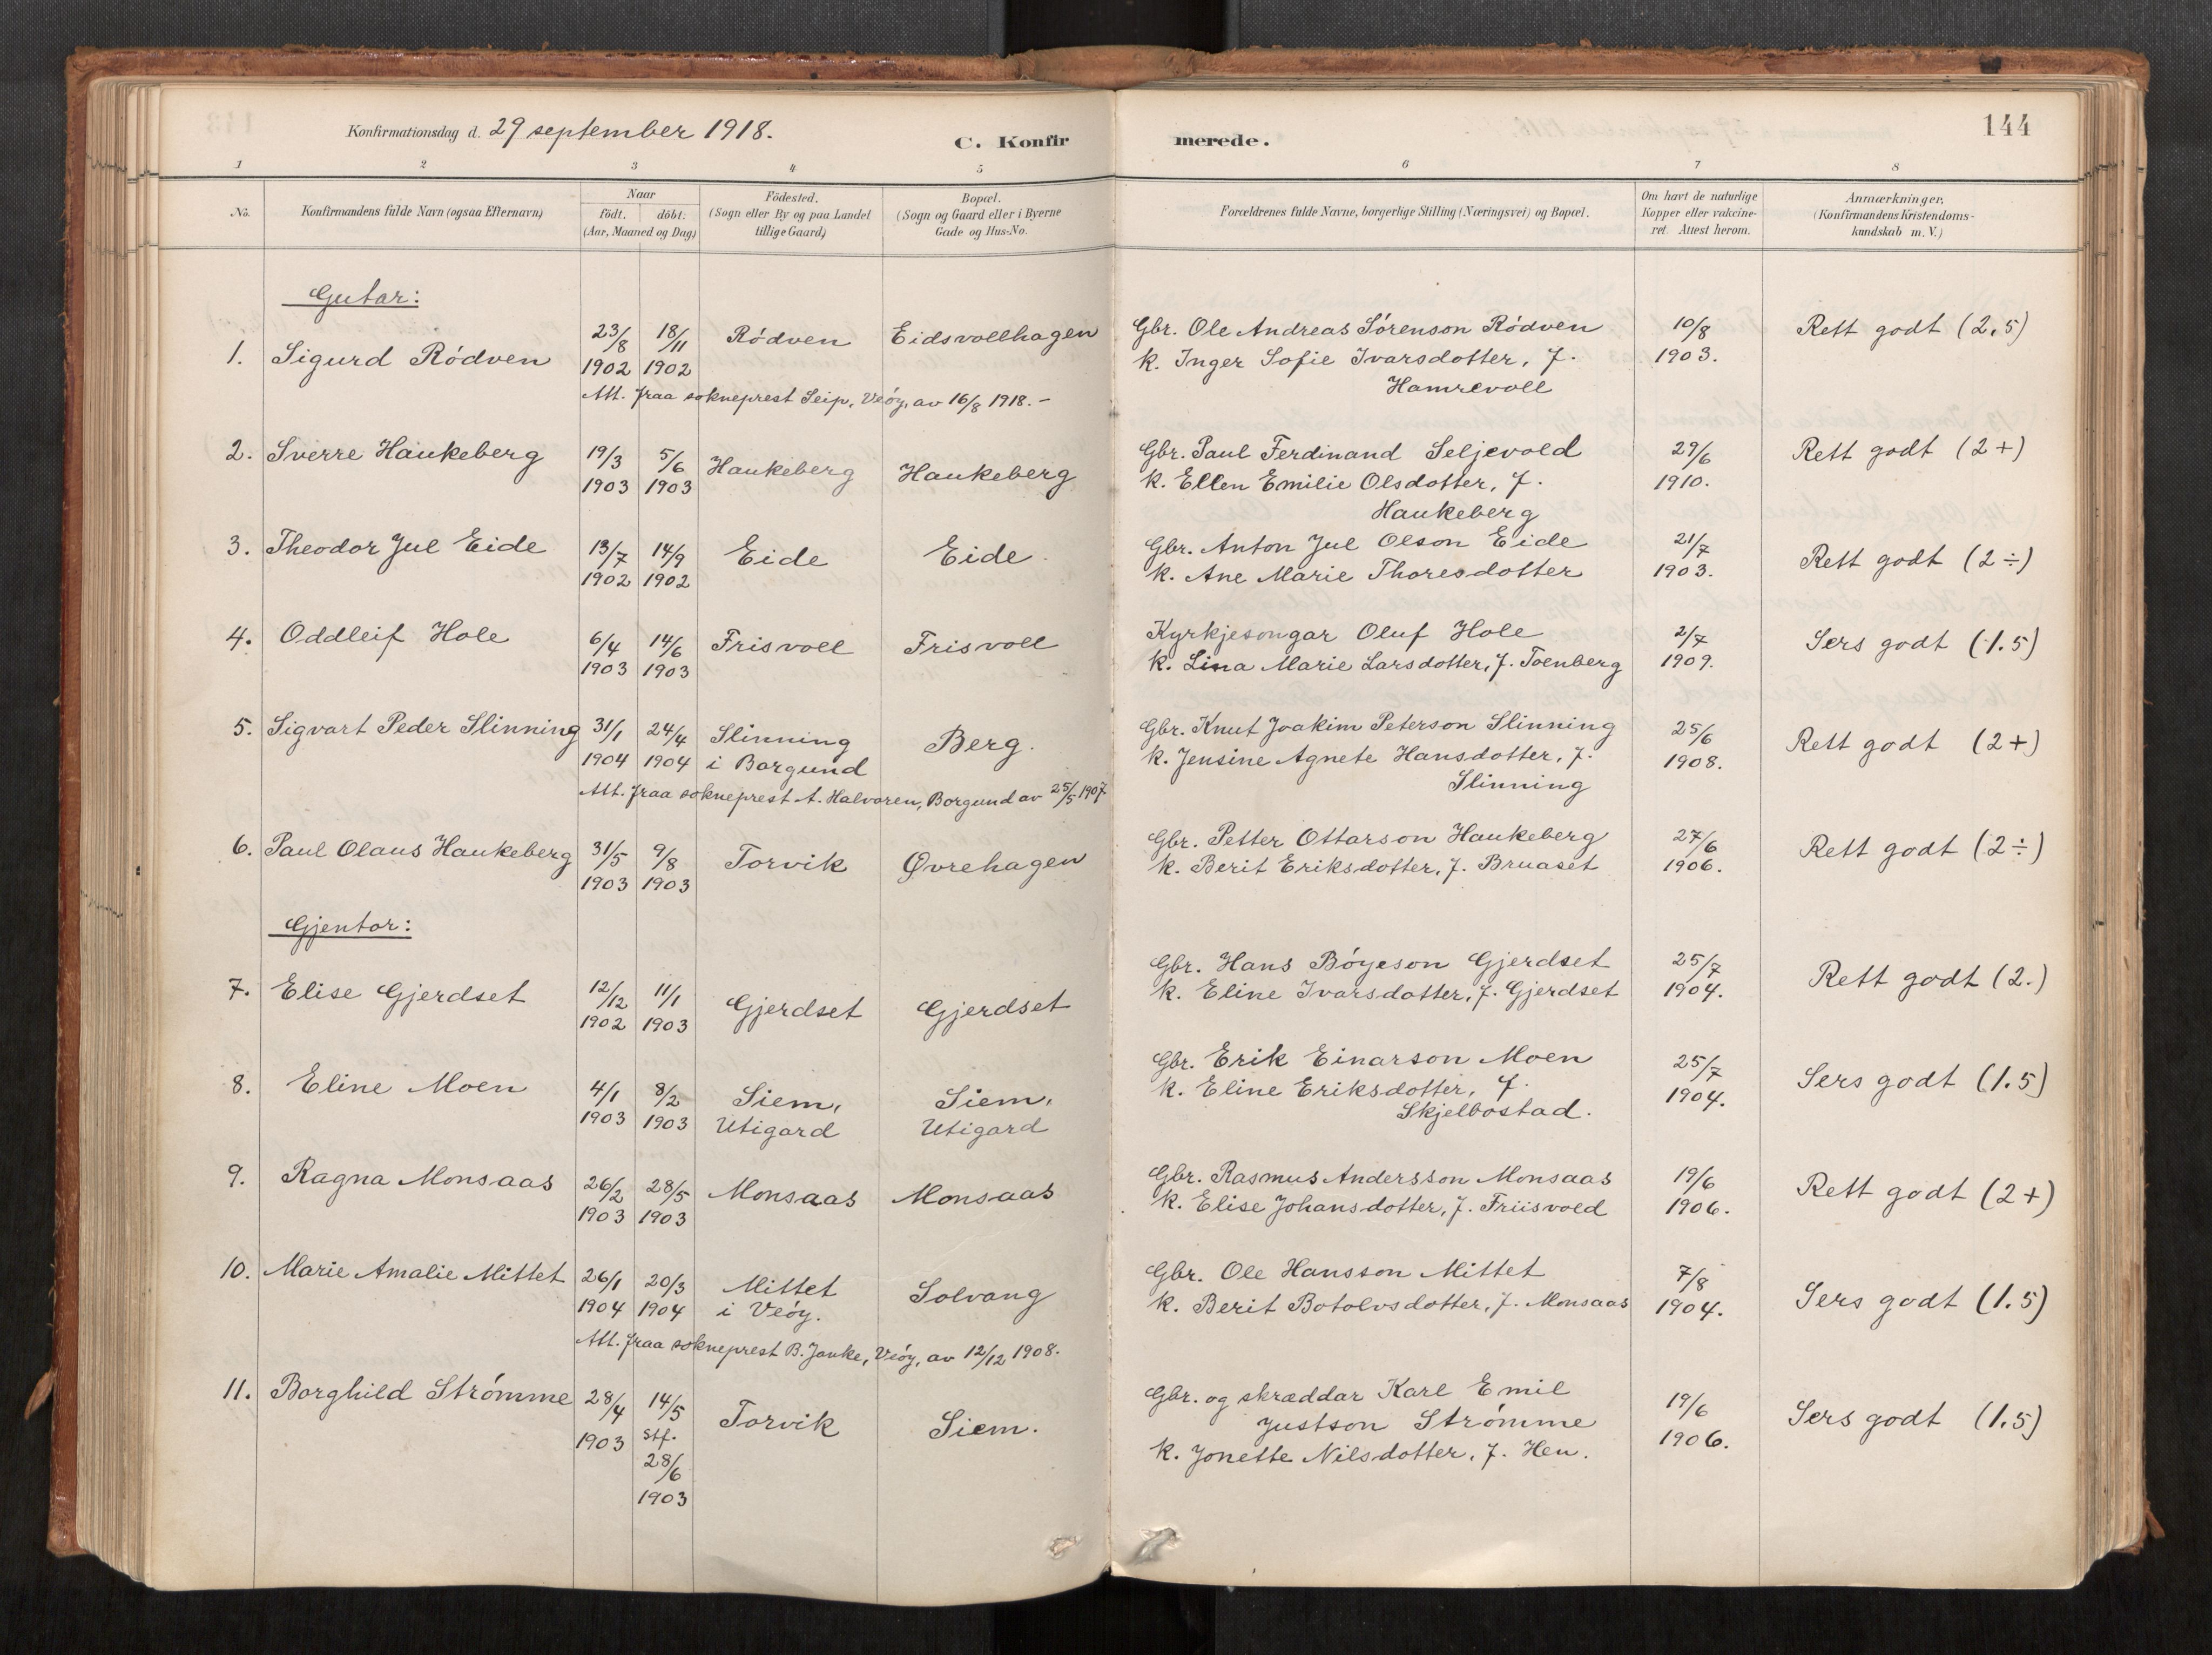 144
Konfirmationsdag d. 29 september 1918.
C. Konfirmerede.
1 2 3 4 5 6 7 8
No.
Konfirmandens fulde Navn (ogsaa Efternavn)
Naar
födt. döbt:
(Aar, Maaned og Dag)
Födested.
(Sogn eller By og paa Landet
tillige Gaard)
Bopæl.
(Sogn og Gaard eller i Byerne
Gade og Hus-No.
Forældrenes fulde Navne, borgerlige Stilling (Næringsvei) og Bopæl.
Om havt de naturlige
Kopper eller vakcine-
ret. Attest herom.
Anmærkninger,
(Konfirmandens Kristendoms-
kundskab m. V.)
Gutar:
1. Sigurd Rödven 23/8 1902 18/11 1902 Rödven Eidsvollhagen
Gbr. Ole Andreas Sörenson Rödven
k. Inger Sofie Ivarsdotter, f.
Hamrevoll
10/8 1903. Rett godt (2,5)
Att. fraa sokneprest Seip, Veöy, av 16/8 1918.-
2. Sverre Haukeberg 19/3 1903 5/6 1903 Haukeberg Haukeberg
Gbr. Paul Ferdinand Seljevold
k. Ellen Emilie Olsdotter, f.
Haukeberg
29/6 1910. Rett godt (2+)
3. Theodor Jul Eide 13/7 1902 14/9 1902 Eide Eide
Gbr. Anton Jul Olson Eide
k. Ane Marie Thoresdotter
21/7 1903. Rett godt (2÷)
4. Oddleif Hole 6/4 1903 14/6 1903 Frisvoll Frisvoll
Kyrkjesongar Oluf Hole
k. Lina Marie Larsdotter, f. Toenberg
2/7 1909. Sers godt (1.5)
5. Sigvart Peder Slinning 31/1 1904 24/4 1904 Slinning
i Borgund
Berg.
Gbr. Knut Joakim Peterson Slinning
k. Jensine Agnete Hansdotter, f.
Slinning
25/6 1908. Rett godt (2+)
Att. fraa sokneprest A. Halvoren, Borgund av 25/5 1907
6. Paul Olaus Haukeberg 31/5 1903 9/8 1903 Torvik Øvrehagen
Gbr. Petter Ottarson Haukeberg
k. Berit Eriksdotter, f. Bruaset
27/6 1906. Rett godt (2÷)
Gjentor:
7. Elise Gjerdset 12/12 1902 11/1 1903 Gjerdset Gjerdset
Gbr. Hans Böyeson Gjerdset
k. Eline Ivarsdotter, f. Gjerdset
25/7 1904. Rett godt (2.)
8. Eline Moen 4/1 1903 8/2 1903 Siem,
Utigard
Siem,
Utigard
Gbr. Erik Einarson Moen
k. Eline Eriksdotter, f.
Skjelbostad.
25/7 1904. Sers godt (1.5)
9. Ragna Monsaas 26/2 1903 28/5 1903 Monsaas Monsaas
Gbr. Rasmus Andersson Monsaas
k. Elise Johansdotter, f. Friisvold
19/6 1906. Rett godt (2+)
10. Marie Amalie Mittet 26/1 1904 20/3 1904 Mittet
i Veöy.
Solvang
Gbr. Ole Hansson Mittet
k. Berit Botolvsdotter, f. Monsaas
7/8 1904. Sers godt (1.5)
Att. fraa sokneprest B. Janke, Veöy, av 12/12 1908.
11. Borghild Strömme 28/4 1903 14/5
stf.
28/6
1903
Torvik Siem.
Gbr. og skræddar Karl Emil
Justson Strömme
k. Jonette Nilsdotter, f. Hen.
19/6 1906. Sers godt (1.5)